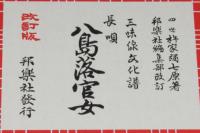 四世杵家彌七原著
邦樂社編集部改訂
三味線文化譜
長唄
八島落官女
改訂版
邦樂社發行